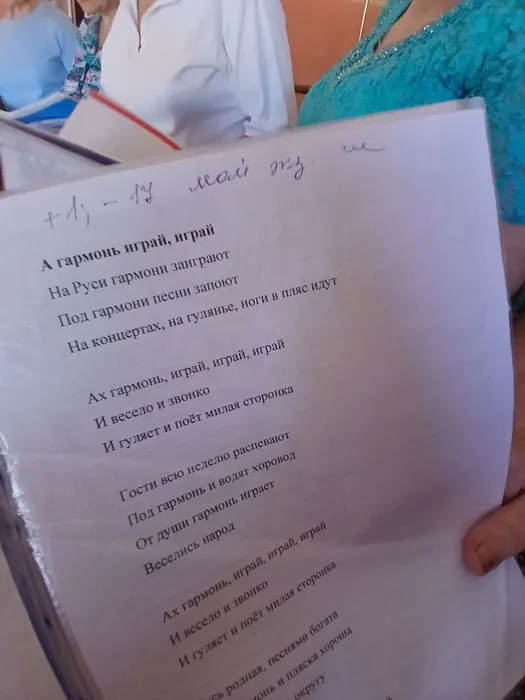 +1; - 17 май
А гармонь играй, играй
На Руси гармони заиграют
Под гармони песни запоют
На концертах, на гулянье, ноги в пляс идут
Ах гармонь, играй, играй, играй
И весело и звонко
И гуляет и поёт милая сторонка
Гости всю неделю распевают
Под гармонь и водят хоровод
От души гармонь играет
Веселись народ
Ах гармонь, играй, играй, играй
И весело и звонко
И гуляет и поёт милая сторонка
родная, песнями богата
и пляска хороша
округу